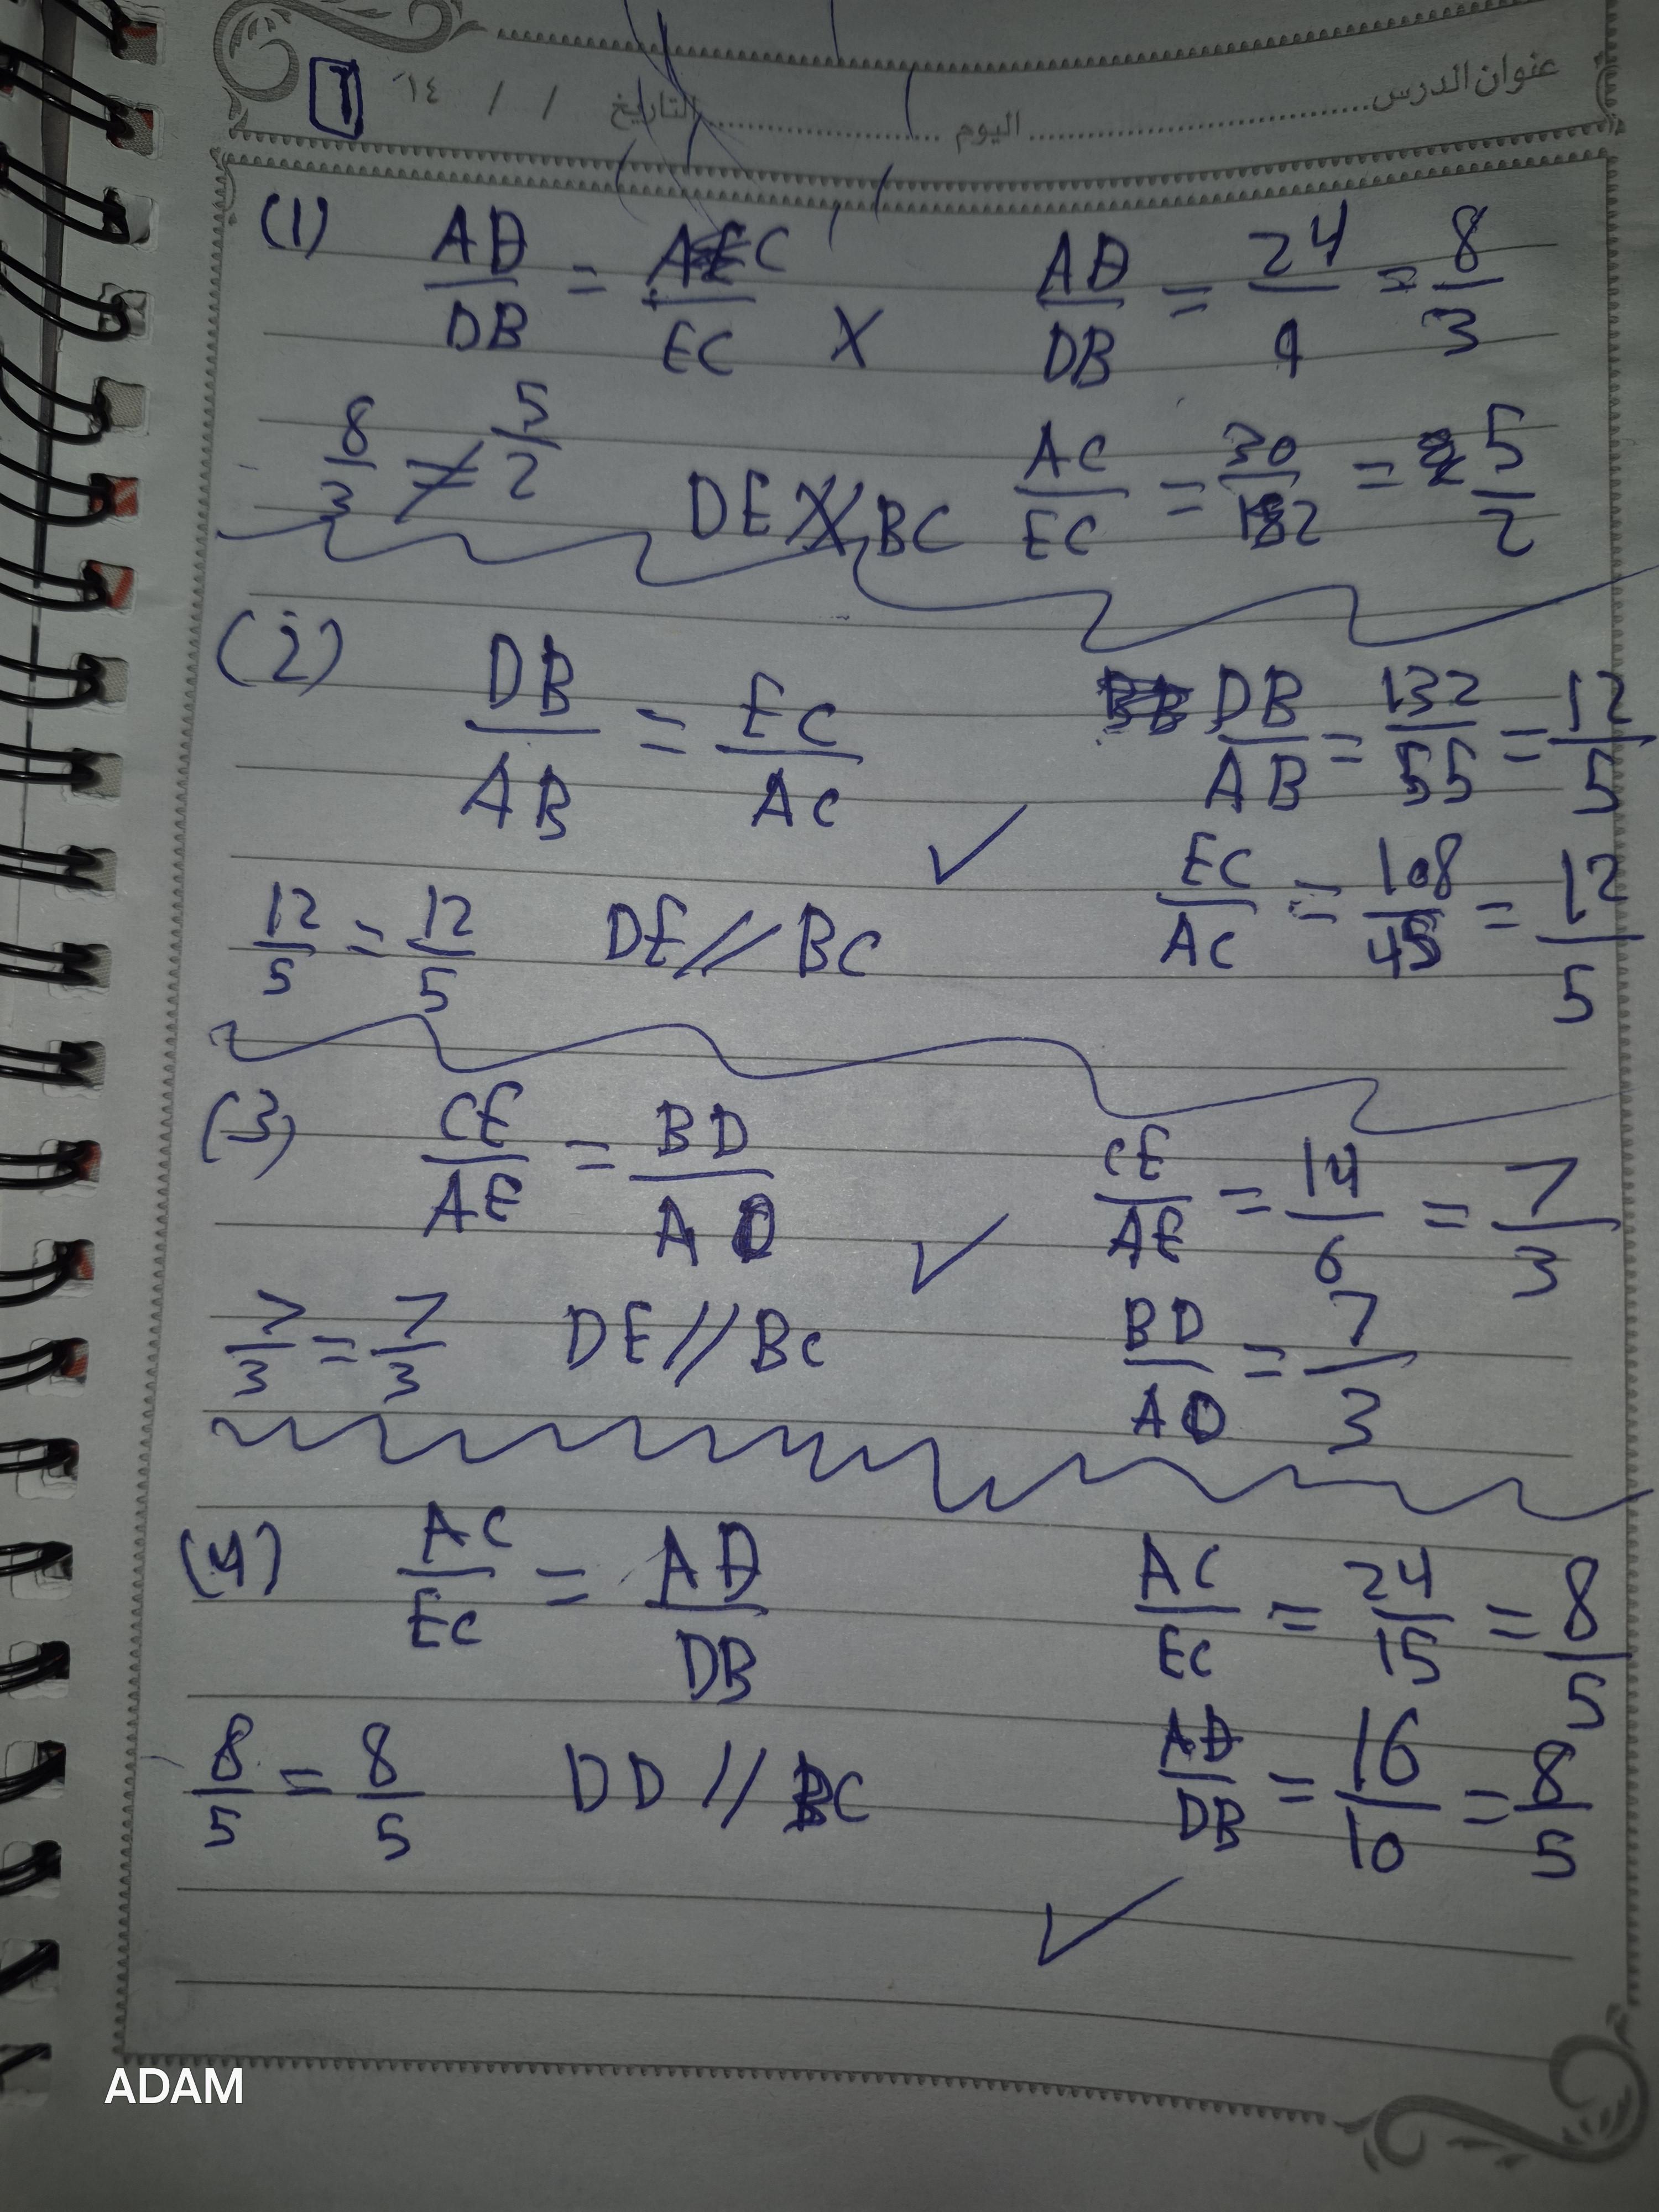 عنوان الدرس اليوم التاريخ / / ١٤
(1) AD/DB = AC/EC X AD/DB = 24/9 = 8/3
8/3 ≠ 5/2 DE ∦ BC AC/EC = 30/12 = 5/2
(2) DB/AB = EC/AC DB/AB = 132/55 = 12/5
12/5 = 12/5 DE // BC ✓ EC/AC = 108/45 = 12/5
(3) CE/AE = BD/AD CE/AE = 14/6 = 7/3
7/3 = 7/3 DE // BC ✓ BD/AD = 7/3
(4) AC/EC = AD/DB AC/EC = 24/15 = 8/5
8/5 = 8/5 DD // BC AD/DB = 16/10 = 8/5
✓
ADAM